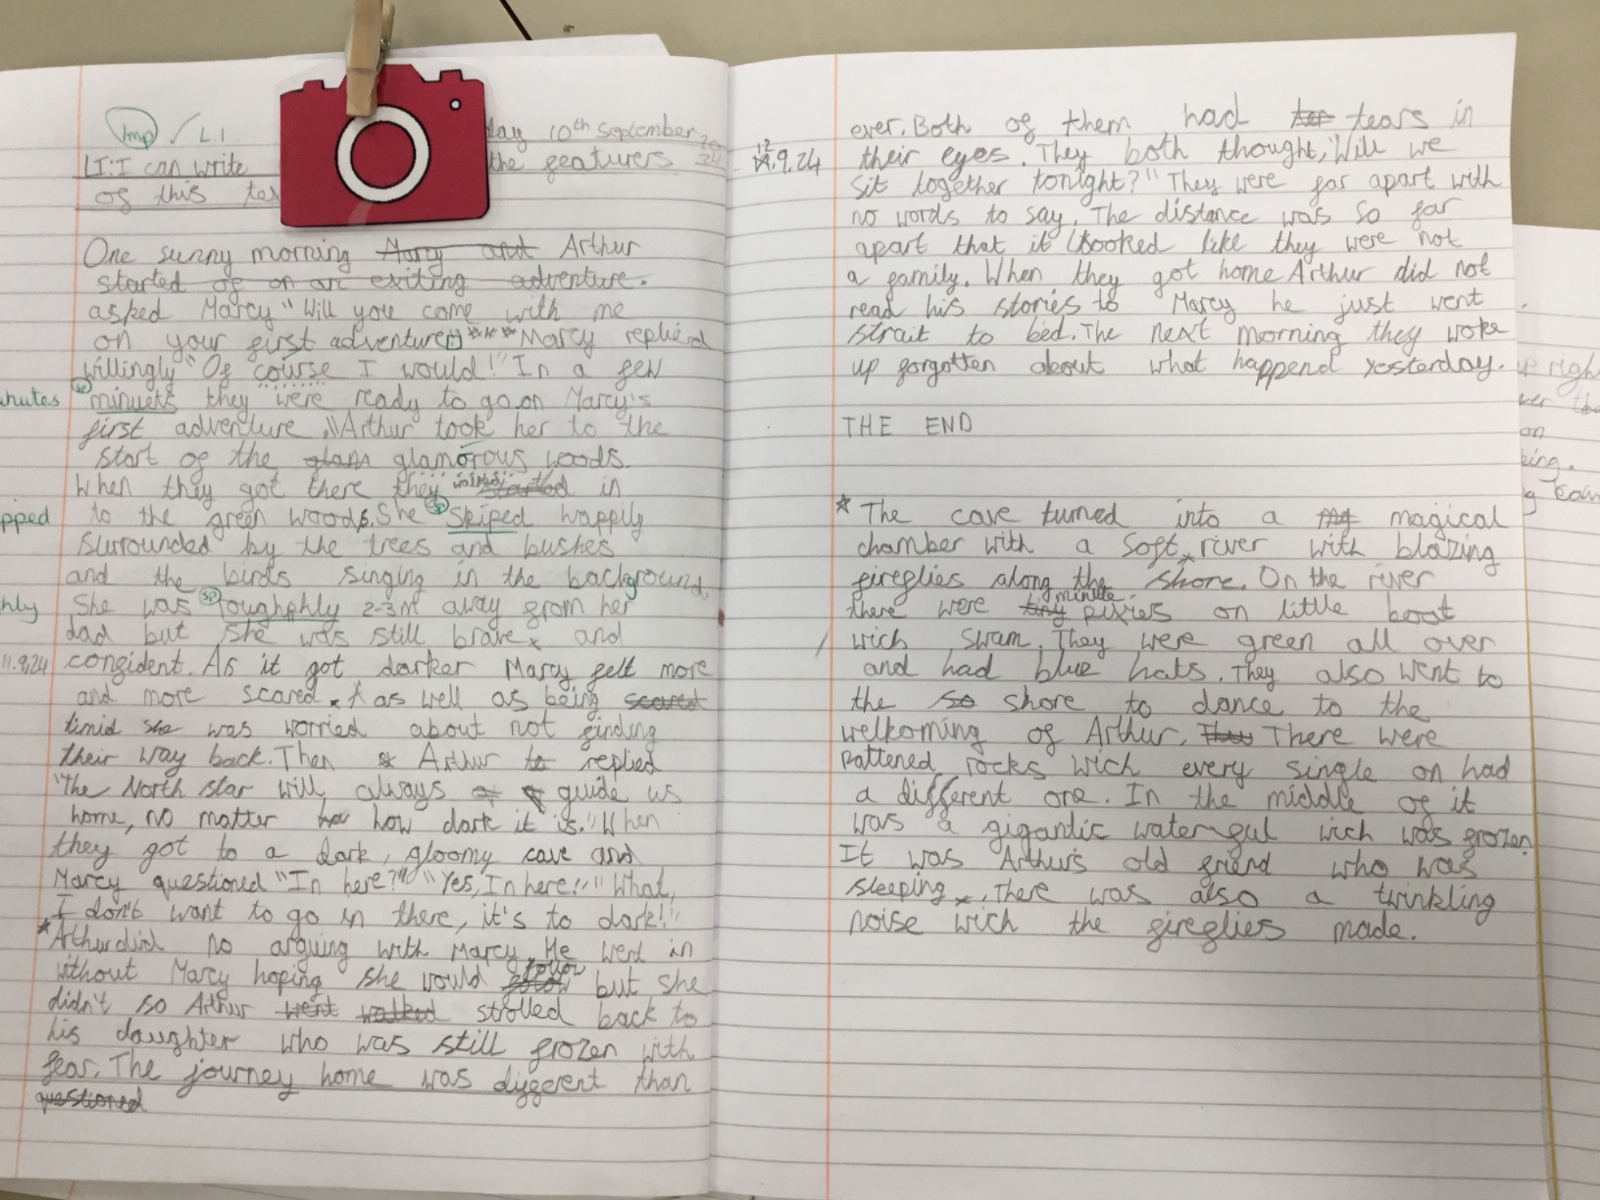 Imp / L.I.
day 10th September
LI: I can write the features
of this
One sunny morning Marcy and Arthur
started of on an exiting adventure.
asked Marcy "Will you come with me
on your first adventure *** Marcy replied
willingly "Of course I would!" In a few
minutes
sp
minuets they were ready to go on Marcy's
first adventure. Arthur took her to the
start of the glam glamorous woods.
When they got there they started in
pped
to the green woods. She sp skiped happily
surrounded by the trees and bushes
and the birds singing in the background.
hly
She was sp toughphly 2-3m away from her
dad but she was still brave and
11.9.24
confident. As it got darker Marcy felt more
and more scared. * as well as being scared
timid she was worried about not finding
their way back. Then Arthur to replied
"The North star will always guide us
home, no matter how how dark it is." When
they got to a dark, gloomy cave and
Marcy questioned "In here?" "Yes, In here!" "What,
I don't want to go in there, it's to dark!"
* Arthur did no arguing with Marcy. He went in
without Marcy hoping she would follow but she
didn't so Arthur went walked strolled back to
his daughter who was still frozen with
fear. The journey home was different than
questioned
ever. Both of them had tears in
12.9.24
their eyes. They both thought, "Will we
sit together tonight?" They were far apart with
no words to say. The distance was so far
apart that it looked like they were not
a family. When they got home Arthur did not
read his stories to Marcy he just went
strait to bed. The next morning they woke
up forgotten about what happend yesterday.
THE END
* The cave turned into a magical
chamber with a soft river with blazing
fireflies along the shore. On the river
there were tiny minute pixies on little boat
wich swam. They were green all over
and had blue hats. They also went to
the so shore to dance to the
welkoming of Arthur. There were
pattened rocks wich every single on had
a different one. In the middle of it
was a gigantic water-gul wich was frozen.
It was Arthur's old friend who was
sleeping. There was also a twinkling
noise wich the fireflies made.